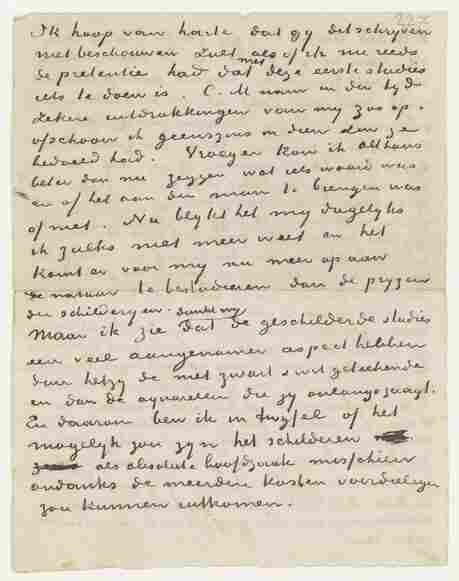 Ik hoop van harte dat gy dit schryven
niet beschouwen zult als of ik nu reeds
de pretentie had dat met deze eerste studies
iets te doen is. C. M nam in der tyd
zekere uitdrukkingen van my zoo op.
ofschoon ik geenszins in dien zin ze
bedoeld had. Vroeger kon ik althans
beter dan nu zeggen wat iets waard was
en of het aan den man te brengen was
of niet. Nu blykt het my dagelyks
ik zulks niet meer weet en het
komt er voor my nu meer op aan
de natuur te bestudeeren dan de pryzen
der schilderyen. dunkt my
Maar ik zie dat de geschilderde studies
een veel aangenamer aspect hebben
dan hetzy de met zwart & wit geteekende
en dan de aquarellen die gy onlangs zaagt.
En daarom ben ik in twyfel of het
mogelyk zou zyn het schilderen
als absolute hoofdzaak misschien
ondanks de meerdere kosten voordeeliger
zou kunnen uitkomen.